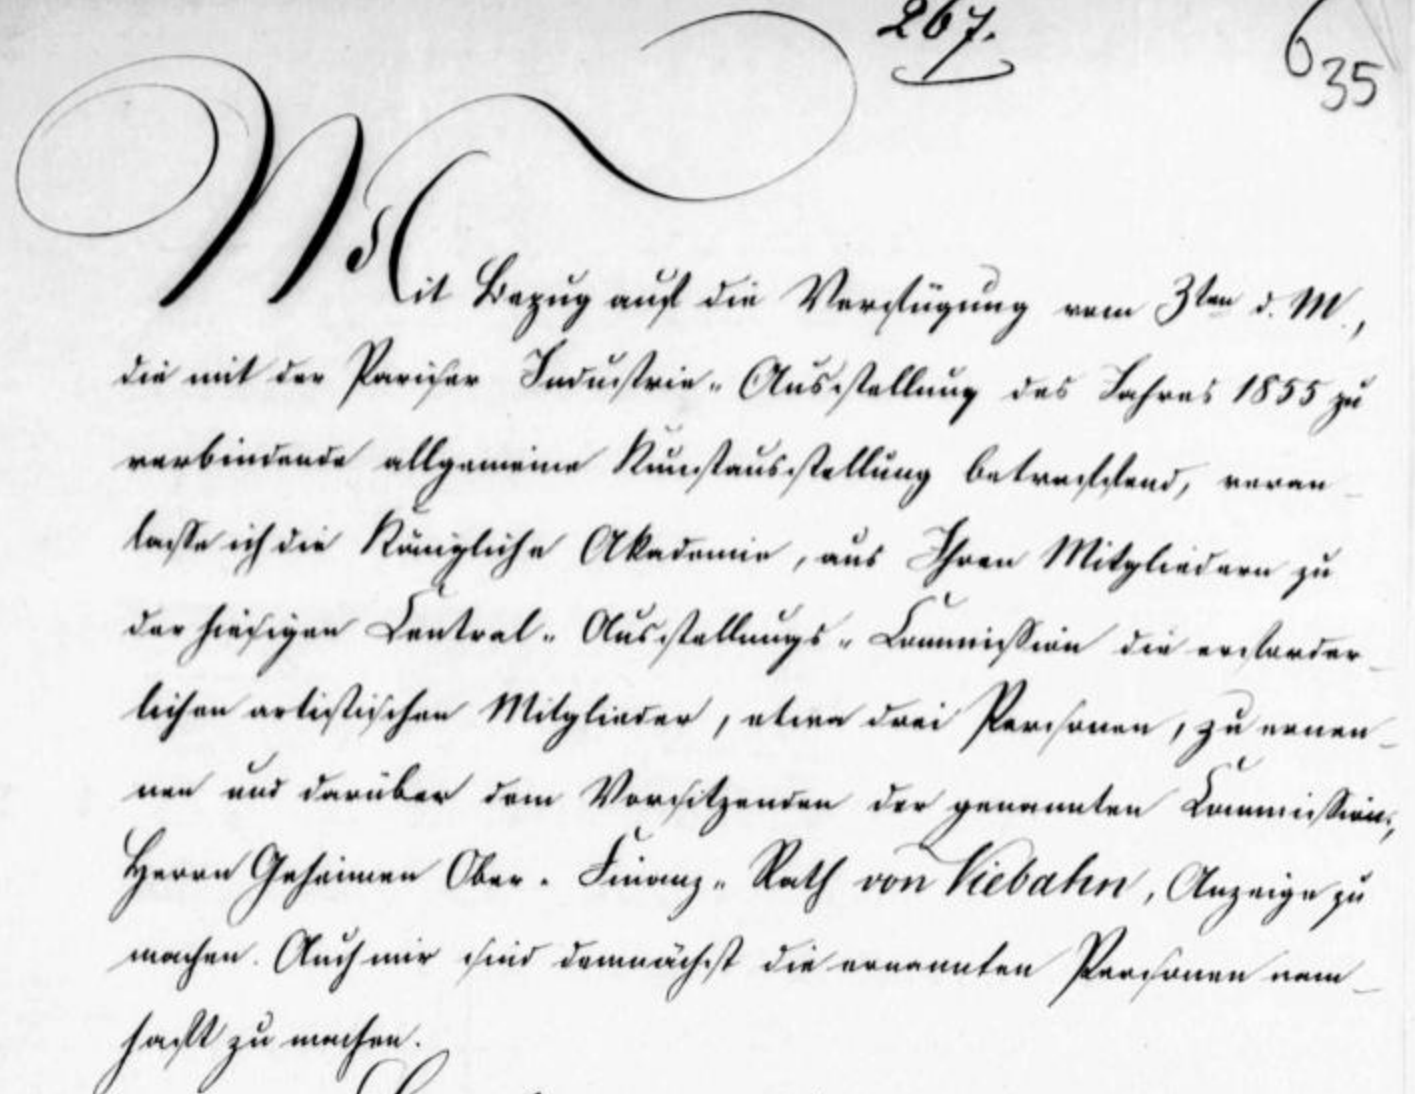 267.
6
35
Mit Bezug auf die Verfügung vom 3ten d. M.,
die mit der Pariser Industrie-Ausstellung des Jahres 1855 zu
verbindende allgemeine Kunstausstellung betreffend, veran-
lasse ich die Königliche Akademie, aus Ihren Mitgliedern zu
der hiesigen Central-Ausstellungs-Commission die erforder-
lichen artistischen Mitglieder, etwa drei Personen, zu ernen-
nen und darüber dem Vorsitzenden der genannten Commission,
Herrn Geheimen Ober-Finanz-Rath von Viebahn, Anzeige zu
machen. Auch mir sind demnächst die ernannten Personen nam-
haft zu machen.